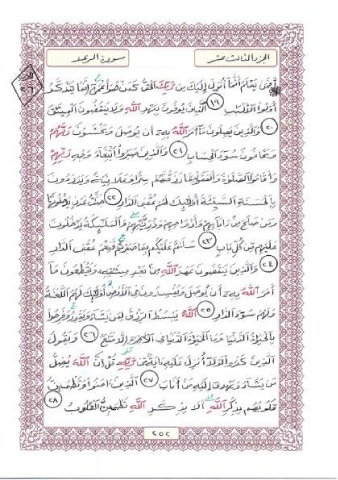 الجزء الثالث عشر
سورة الرعد
أفمن يعلم أنما أنزل إليك من ربك الحق كمن هو أعمى إنما يتذكر
أولوا الألباب ١٩ الذين يوفون بعهد الله ولا ينقضون الميثاق
٢٠ والذين يصلون ما أمر الله به أن يوصل ويخشون ربهم
ويخافون سوء الحساب ٢١ والذين صبروا ابتغاء وجه ربهم
وأقاموا الصلوة وأنفقوا مما رزقنهم سرا وعلانية ويدرءون
بالحسنة السيئة أولئك لهم عقبى الدار ٢٢ جنت عدن يدخلونها
ومن صلح من ءابائهم وأزوجهم وذريتهم والملئكة يدخلون
عليهم من كل باب ٢٣ سلم عليكم بما صبرتم فنعم عقبى الدار
٢٤ والذين ينقضون عهد الله من بعد ميثقه ويقطعون ما
أمر الله به أن يوصل ويفسدون في الأرض أولئك لهم اللعنة
ولهم سوء الدار ٢٥ الله يبسط الرزق لمن يشاء ويقدر وفرحوا
بالحيوة الدنيا وما الحيوة الدنيا في الأخرة إلا متع ٢٦ ويقول
الذين كفروا لولا أنزل عليه ءاية من ربه قل إن الله يضل
من يشاء ويهدي إليه من أناب ٢٧ الذين ءامنوا وتطمئن
قلوبهم بذكر الله ألا بذكر الله تطمئن القلوب ٢٨
٢٥٢